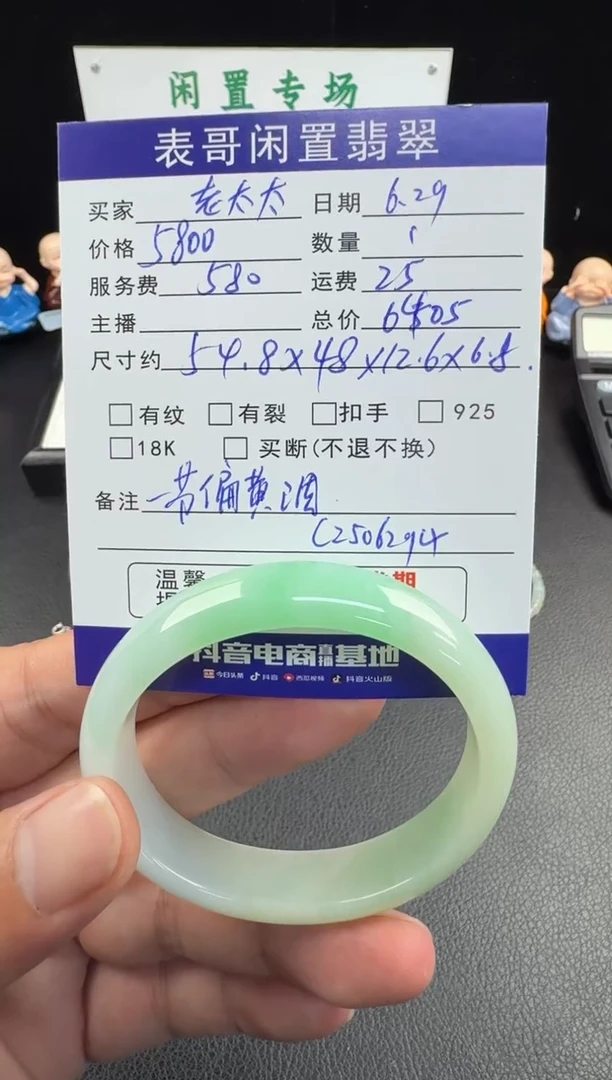 闲置专场
表哥闲置翡翠
买家 老太太 日期 6.29
价格 5800 数量 1
服务费 580 运费 25
主播 总价 6405
尺寸约 54.8×48×12.6×6.8.
□有纹 □有裂 □扣手 □925
□18K □买断(不退不换)
备注 一节偏黄调
C2506294
温馨 期
抖音电商直播基地
今日头条 抖音 西瓜视频 抖音火山版